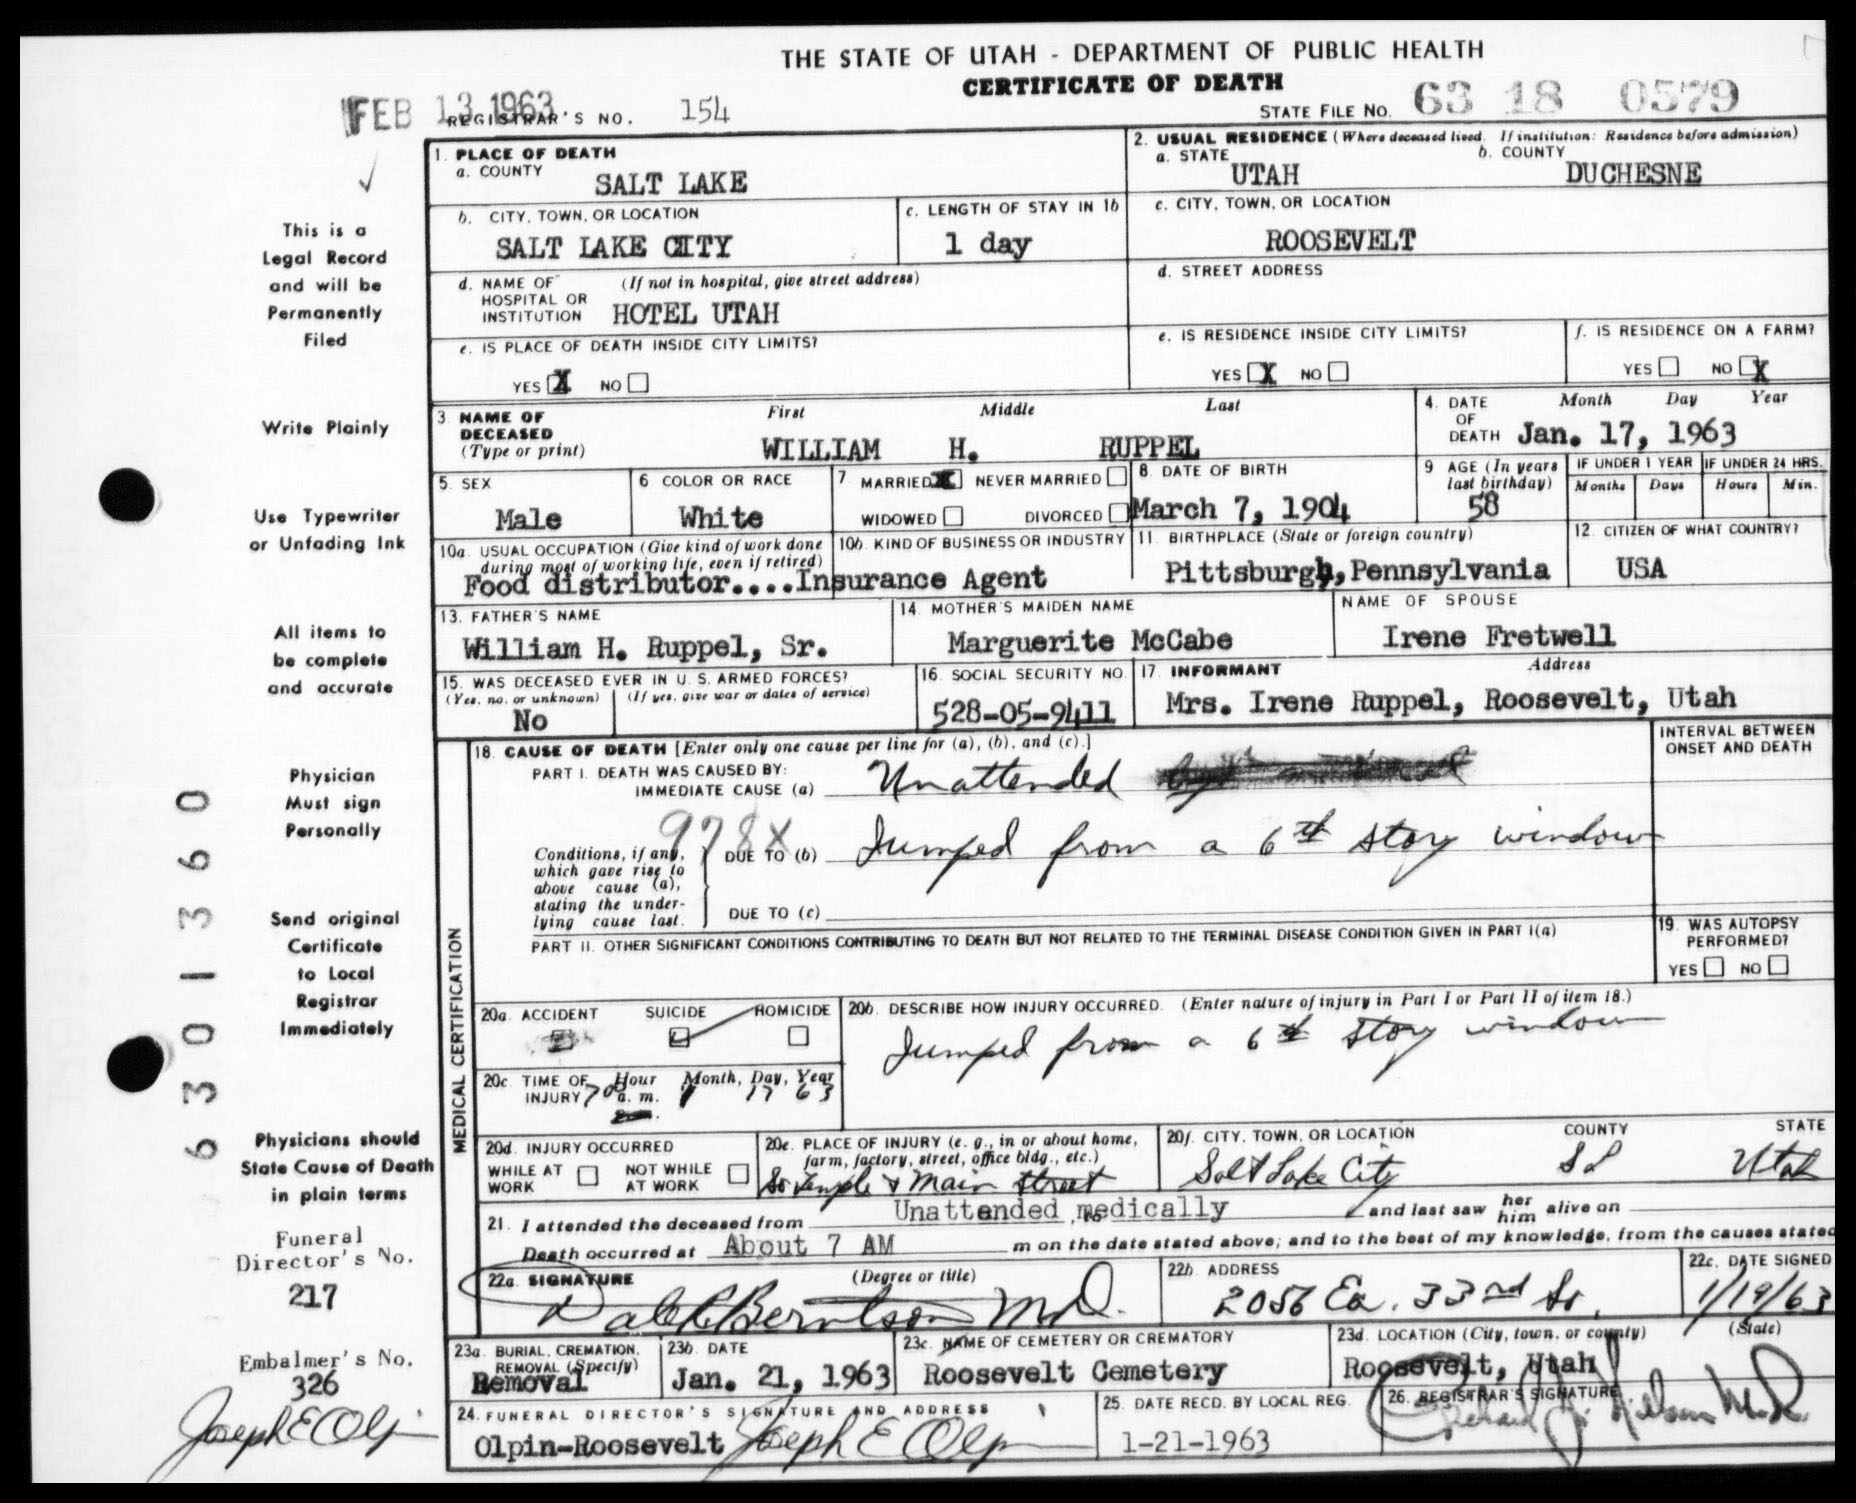 THE STATE OF UTAH - DEPARTMENT OF PUBLIC HEALTH
CERTIFICATE OF DEATH
FEB 13 1963
REGISTRAR'S NO. 154
STATE FILE NO. 63 18 0579
1. PLACE OF DEATH
a. COUNTY SALT LAKE
2. USUAL RESIDENCE (Where deceased lived. If institution: Residence before admission)
a. STATE UTAH b. COUNTY DUCHESNE
b. CITY, TOWN, OR LOCATION SALT LAKE CITY
c. LENGTH OF STAY IN 1b 1 day
c. CITY, TOWN, OR LOCATION ROOSEVELT
d. NAME OF HOSPITAL OR INSTITUTION (If not in hospital, give street address) HOTEL UTAH
d. STREET ADDRESS
e. IS PLACE OF DEATH INSIDE CITY LIMITS?
YES X NO
e. IS RESIDENCE INSIDE CITY LIMITS?
YES X NO
f. IS RESIDENCE ON A FARM?
YES NO X
3. NAME OF DECEASED (Type or print)
First Middle Last
WILLIAM H. RUPPEL
4. DATE OF DEATH Month Day Year
Jan. 17, 1963
5. SEX Male
6 COLOR OR RACE White
7. MARRIED X NEVER MARRIED
WIDOWED DIVORCED
8. DATE OF BIRTH March 7, 1904
9 AGE (In years last birthday) 58
IF UNDER 1 YEAR Months Days
IF UNDER 24 HRS. Hours Min.
10a. USUAL OCCUPATION (Give kind of work done during most of working life, even if retired)
10b. KIND OF BUSINESS OR INDUSTRY
Food distributor....Insurance Agent
11. BIRTHPLACE (State or foreign country)
Pittsburgh, Pennsylvania
12. CITIZEN OF WHAT COUNTRY?
USA
13. FATHER'S NAME
William H. Ruppel, Sr.
14. MOTHER'S MAIDEN NAME
Marguerite McCabe
NAME OF SPOUSE
Irene Fretwell
15. WAS DECEASED EVER IN U. S. ARMED FORCES?
(Yes, no, or unknown) (If yes, give war or dates of service)
No
16. SOCIAL SECURITY NO.
528-05-9411
17. INFORMANT Address
Mrs. Irene Ruppel, Roosevelt, Utah
MEDICAL CERTIFICATION
18. CAUSE OF DEATH [Enter only one cause per line for (a), (b), and (c).]
INTERVAL BETWEEN ONSET AND DEATH
PART I. DEATH WAS CAUSED BY:
IMMEDIATE CAUSE (a) Unattended
978X
Conditions, if any, which gave rise to above cause (a), stating the underlying cause last.
DUE TO (b) Jumped from a 6th story window
DUE TO (c)
PART II. OTHER SIGNIFICANT CONDITIONS CONTRIBUTING TO DEATH BUT NOT RELATED TO THE TERMINAL DISEASE CONDITION GIVEN IN PART I(a)
19. WAS AUTOPSY PERFORMED?
YES NO
20a. ACCIDENT SUICIDE HOMICIDE
20b. DESCRIBE HOW INJURY OCCURRED. (Enter nature of injury in Part I or Part II of item 18.)
Jumped from a 6th story window
20c. TIME OF INJURY Hour Month, Day, Year
7 00 a. m. 1 17 63
20d. INJURY OCCURRED
WHILE AT WORK NOT WHILE AT WORK
20e. PLACE OF INJURY (e. g., in or about home, farm, factory, street, office bldg., etc.)
So Temple & Main Street
20f. CITY, TOWN, OR LOCATION COUNTY STATE
Salt Lake City SL Utah
21. I attended the deceased from Unattended medically to and last saw her him alive on
Death occurred at About 7 AM m on the date stated above; and to the best of my knowledge, from the causes stated
22a. SIGNATURE (Degree or title)
Dale C Berntson MD.
22b. ADDRESS
2056 Ea. 33rd So.
22c. DATE SIGNED
1/19/63
23a. BURIAL, CREMATION, REMOVAL (Specify)
Removal
23b. DATE
Jan. 21, 1963
23c. NAME OF CEMETERY OR CREMATORY
Roosevelt Cemetery
23d. LOCATION (City, town, or county) (State)
Roosevelt, Utah
24. FUNERAL DIRECTOR'S SIGNATURE AND ADDRESS
Olpin-Roosevelt Joseph E Olpin
25. DATE RECD. BY LOCAL REG.
1-21-1963
26. REGISTRAR'S SIGNATURE
This is a
Legal Record
and will be
Permanently
Filed
Write Plainly
Use Typewriter
or Unfading Ink
All items to
be complete
and accurate
Physician
Must sign
Personally
Send original
Certificate
to Local
Registrar
Immediately
Physicians should
State Cause of Death
in plain terms
Funeral
Director's No.
217
Embalmer's No.
326
Joseph E Olpin
6301360